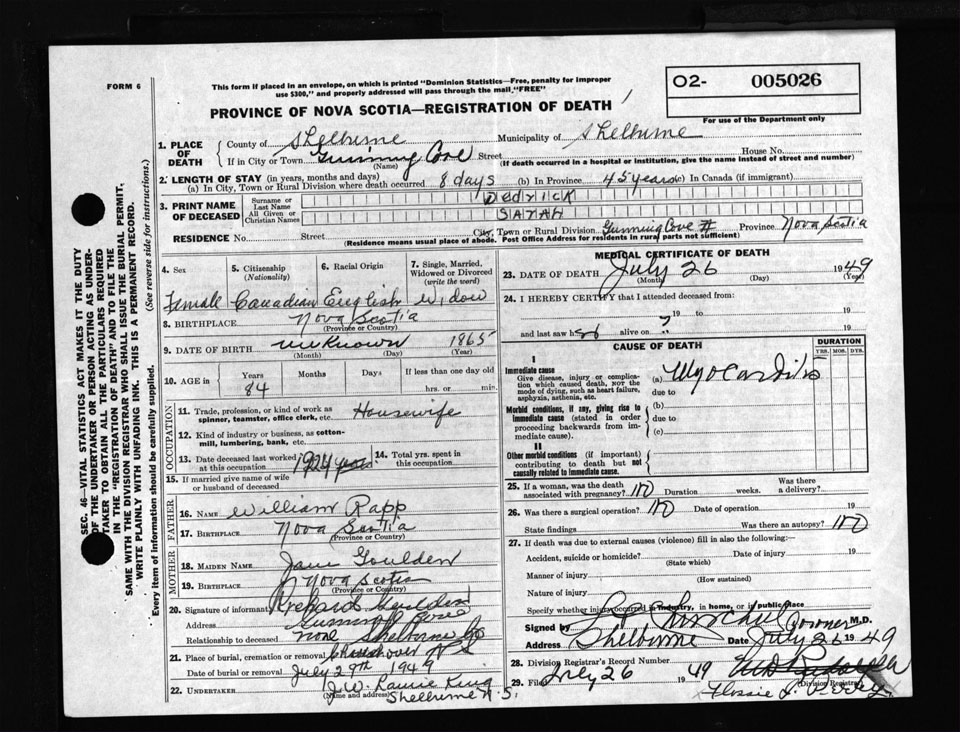 FORM 6
This form if placed in an envelope, on which is printed "Dominion Statistics—Free, penalty for improper
use $300," and properly addressed will pass through the mail "FREE"
O2- 005026
For use of the Department only
PROVINCE OF NOVA SCOTIA—REGISTRATION OF DEATH
SEC. 46—VITAL STATISTICS ACT MAKES IT THE DUTY
OF THE UNDERTAKER OR PERSON ACTING AS UNDER-
TAKER TO OBTAIN ALL THE PARTICULARS REQUIRED
IN THE "REGISTRATION OF DEATH" AND TO FILE THE
SAME WITH THE DIVISION REGISTRAR WHO SHALL ISSUE THE BURIAL PERMIT.
WRITE PLAINLY WITH UNFADING INK. THIS IS A PERMANENT RECORD.
Every item of information should be carefully supplied. (See reverse side for instructions.)
1. PLACE OF DEATH
County of Shelburne Municipality of Shelburne
If in City or Town Gunning Cove Street House No.
(Name) (If death occurred in a hospital or institution, give the name instead of street and number)
2. LENGTH OF STAY (in years, months and days)
(a) In City, Town or Rural Division where death occurred 8 days (b) In Province 45 years (c) In Canada (if immigrant)
3. PRINT NAME OF DECEASED
Surname or Last Name DEDRICK
All Given or Christian Names SARAH
RESIDENCE No. Street City, Town or Rural Division Gunning Cove Province Nova Scotia
(Residence means usual place of abode. Post Office Address for residents in rural parts not sufficient)
4. Sex Female
5. Citizenship (Nationality) Canadian
6. Racial Origin English
7. Single, Married, Widowed or Divorced (write the word) Widow
8. BIRTHPLACE Nova Scotia
(Province or Country)
9. DATE OF BIRTH unknown 1865
(Month) (Day) (Year)
10. AGE in Years 84 Months Days If less than one day old hrs. or min.
OCCUPATION
11. Trade, profession, or kind of work as spinner, teamster, office clerk, etc. Housewife
12. Kind of industry or business, as cotton-mill, lumbering, bank, etc.
13. Date deceased last worked at this occupation 1924
14. Total yrs. spent in this occupation
15. If married give name of wife or husband of deceased
FATHER
16. NAME William Rapp
17. BIRTHPLACE Nova Scotia
(Province or Country)
MOTHER
18. MAIDEN NAME Jane Goulden
19. BIRTHPLACE Nova Scotia
(Province or Country)
20. Signature of informant
Address Gunning Cove
Relationship to deceased none Shelburne Co
21. Place of burial, cremation or removal N S
Date of burial or removal July 29th 1949
22. UNDERTAKER J.W. Laurie King
(Name and address) Shelburne N.S.
MEDICAL CERTIFICATE OF DEATH
23. DATE OF DEATH July 26 1949
(Month) (Day) (Year)
24. I HEREBY CERTIFY that I attended deceased from:
19 to 19
and last saw h alive on 19
CAUSE OF DEATH
DURATION
YRS. MOS. DYS.
I
Immediate cause
Give disease, injury or complication which caused death, NOT the mode of dying, such as heart failure, asphyxia, asthenia, etc.
(a) Myocarditis
due to
Morbid conditions, if any, giving rise to immediate cause (stated in order proceeding backwards from immediate cause).
(b)
due to
(c)
II
Other morbid conditions (if important) contributing to death but not causally related to immediate cause.
25. If a woman, was the death associated with pregnancy? no Duration weeks. Was there a delivery?
26. Was there a surgical operation? no Date of operation 19
State findings Was there an autopsy? no
27. If death was due to external causes (violence) fill in also the following:—
Accident, suicide or homicide? Date of injury 19
(State which)
Manner of injury
(How sustained)
Nature of injury
Specify whether injury occurred in industry, in home, or in public place
Signed by Coroner M.D.
Address Shelburne Date July 26 1949
28. Division Registrar's Record Number
29. Filed July 26 1949
(Division Registrar)
Flossie